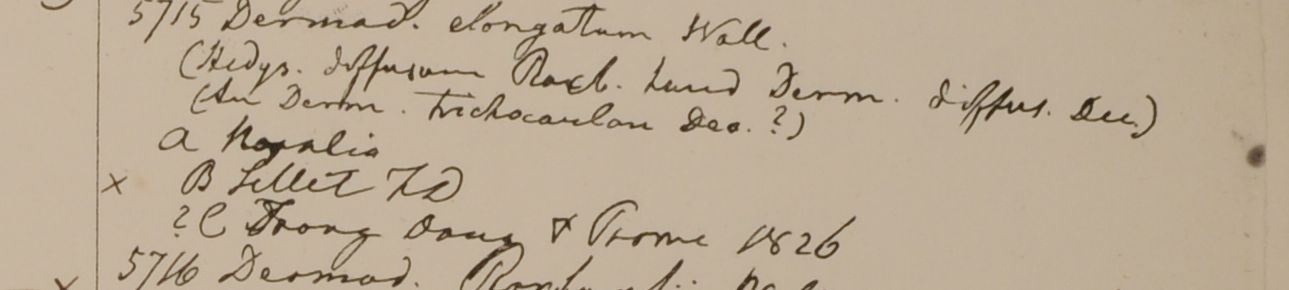 5715 Desmod. elongatum Wall.
(Hedys. diffusum Roxb. haud Desm. diffus. Dec.)
(An Desm. trichocaulon Dec. ?)
a Napalia
× B Sillet FD
? C Trong Dong & Prome 1826
× 5716 Desmod.